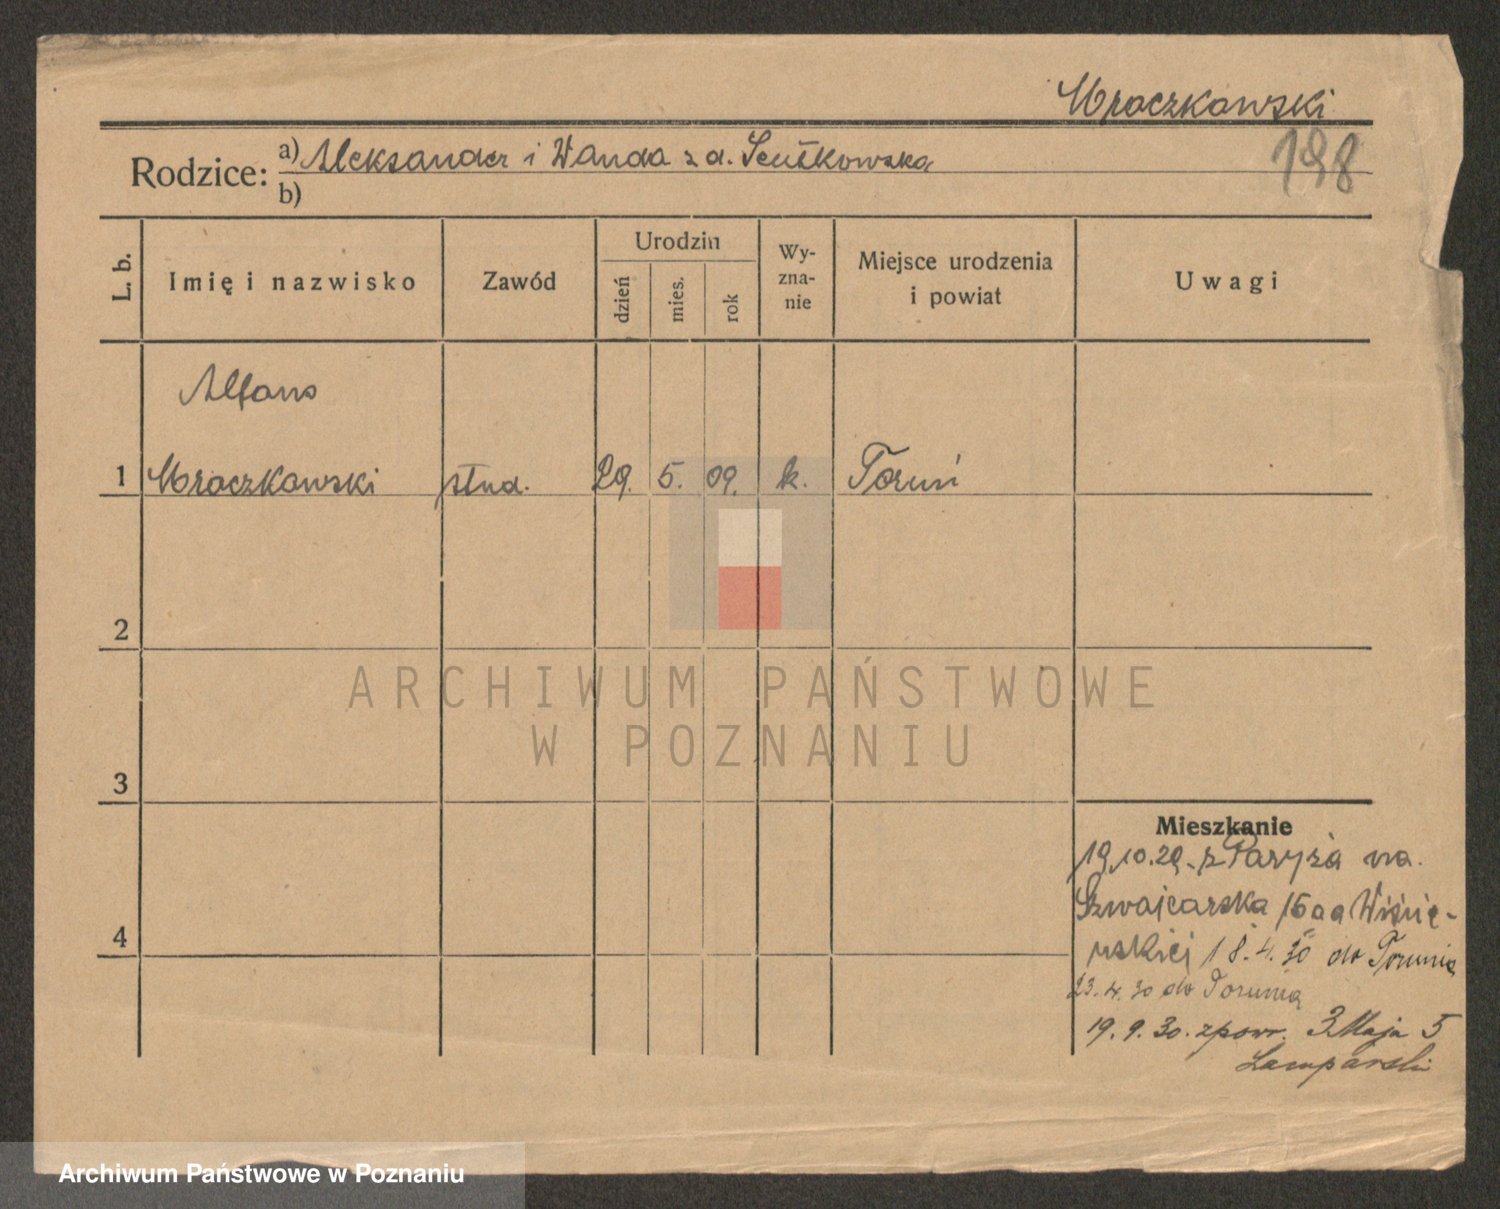 Mroczkowski
198
Rodzice: a) Aleksander i Wanda z d. Szułkowska
b)
L. b. Imię i nazwisko Zawód Urodzin dzień mies. rok Wy-zna-nie Miejsce urodzenia i powiat Uwagi
Alfons
1 Mroczkowski stud. 29. 5. 09. k. Toruń
2
ARCHIWUM PAŃSTWOWE
W POZNANIU
3
Mieszkanie
19.10.29. z Paryża na
Szwajcarska 15 a a Wiśnie-
wskiej 18.4.30 do Torunia
4
23.4.30 do Torunia
19.9.30. z pow. 3 Maja 5
Lamparski
Archiwum Państwowe w Poznaniu